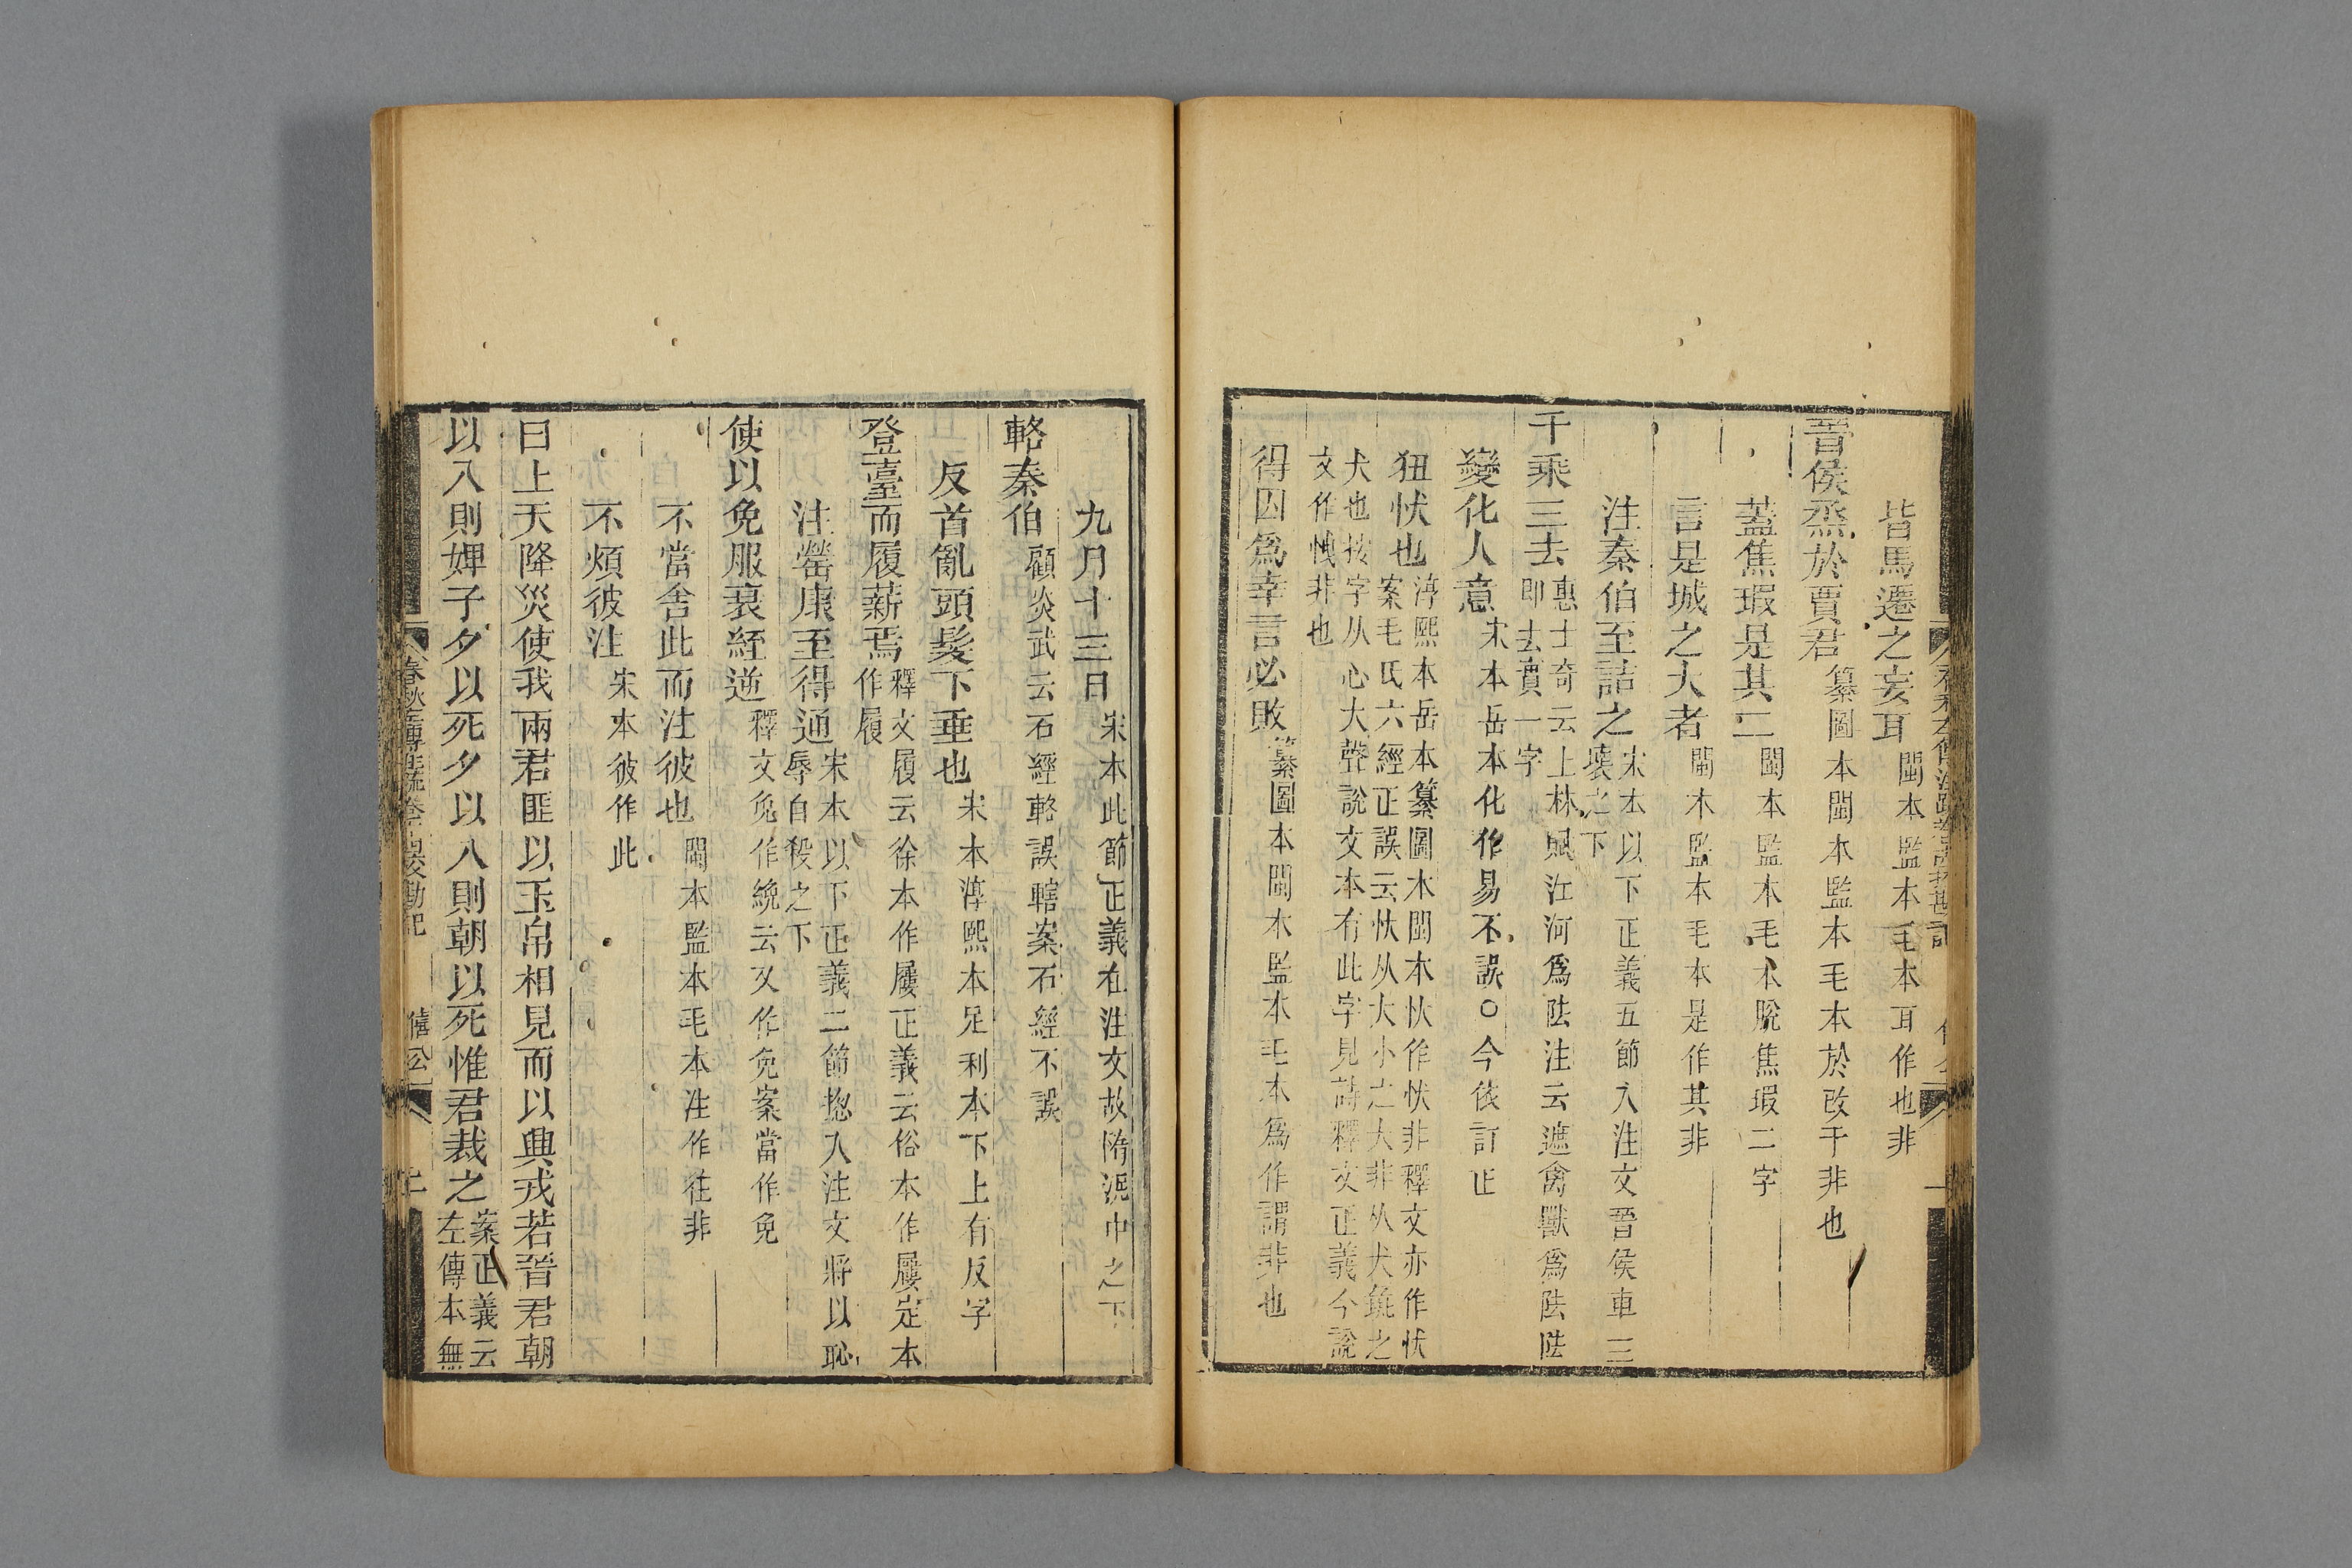 皆馬遷之妄耳 閩本監本毛本耳作也非
晉侯烝於賈君 纂圖本閩本監本毛本於改于非也
蓋焦瑕是其二 閩本監本毛本脫焦瑕二字
言是城之大者 閩本監本毛本是作其非
注秦伯至詰之 宋本以下正義五節入注文晉侯車三
壞之下
千乘三去 惠士奇云上林賦江河爲阹注云遮禽獸爲阹阹
即去實一字
變化人意 宋本岳本化作易不誤○今依訂正
狃忕也 淳熙本岳本纂圖本閩本忕作忕非釋文亦作忕
案毛氏六經正誤云忕从大小之大非从犬
犬也按字从心大聲說文本有此字見詩釋文正義今說
文作愧非也
得囚爲幸言必敗 纂圖本閩本監本毛本爲作謂非也
九月十三日 宋本此節正義在注文故隋泥中之下
輅秦伯 顧炎武云石經輅誤轄案石經不誤
反首亂頭髮下垂也 宋本淳熙本足利本下上有反字
登臺而履薪焉 釋文履云徐本作屨正義云俗本作屨定本
作履
注罃康至得通 宋本以下正義二節揔入注文將以恥
辱自殺之下
使以免服衰絰逆 釋文免作絻云又作免案當作免
不當舍此而注彼也 閩本監本毛本注作往非
不煩彼注 宋本彼作此
曰上天降災使我兩君匪以玉帛相見而以興戎若晉君朝
以入則婢子夕以死夕以入則朝以死惟君裁之 案正義云
左傳本無
春秋左傳注疏卷 校勘記 僖公